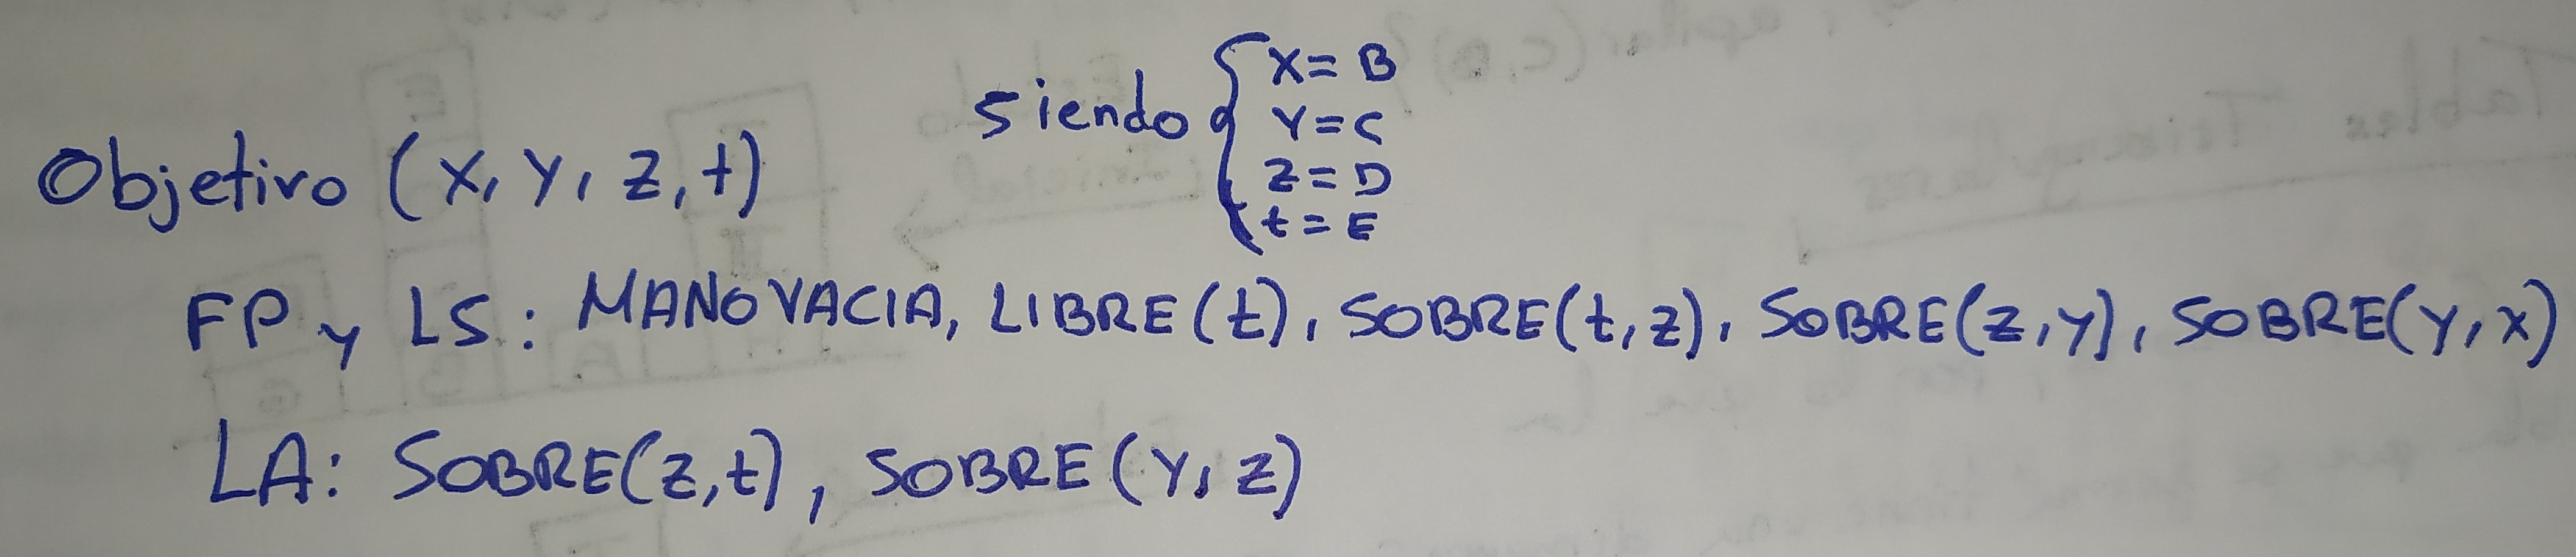 Objetivo (x, y, z, t) siendo { x = B
y = C
z = D
t = E
FP y LS: MANOVACIA, LIBRE(t), SOBRE(t,z), SOBRE(z,y), SOBRE(y,x)
LA: SOBRE(z,t), SOBRE(y,z)